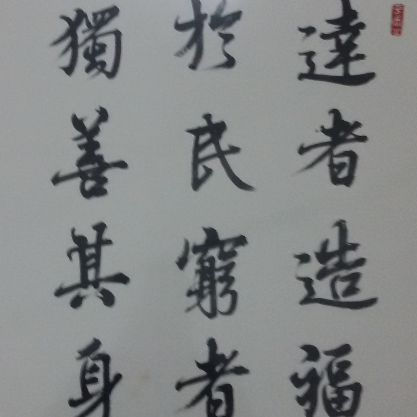 達者造福
於民窮者
獨善其身